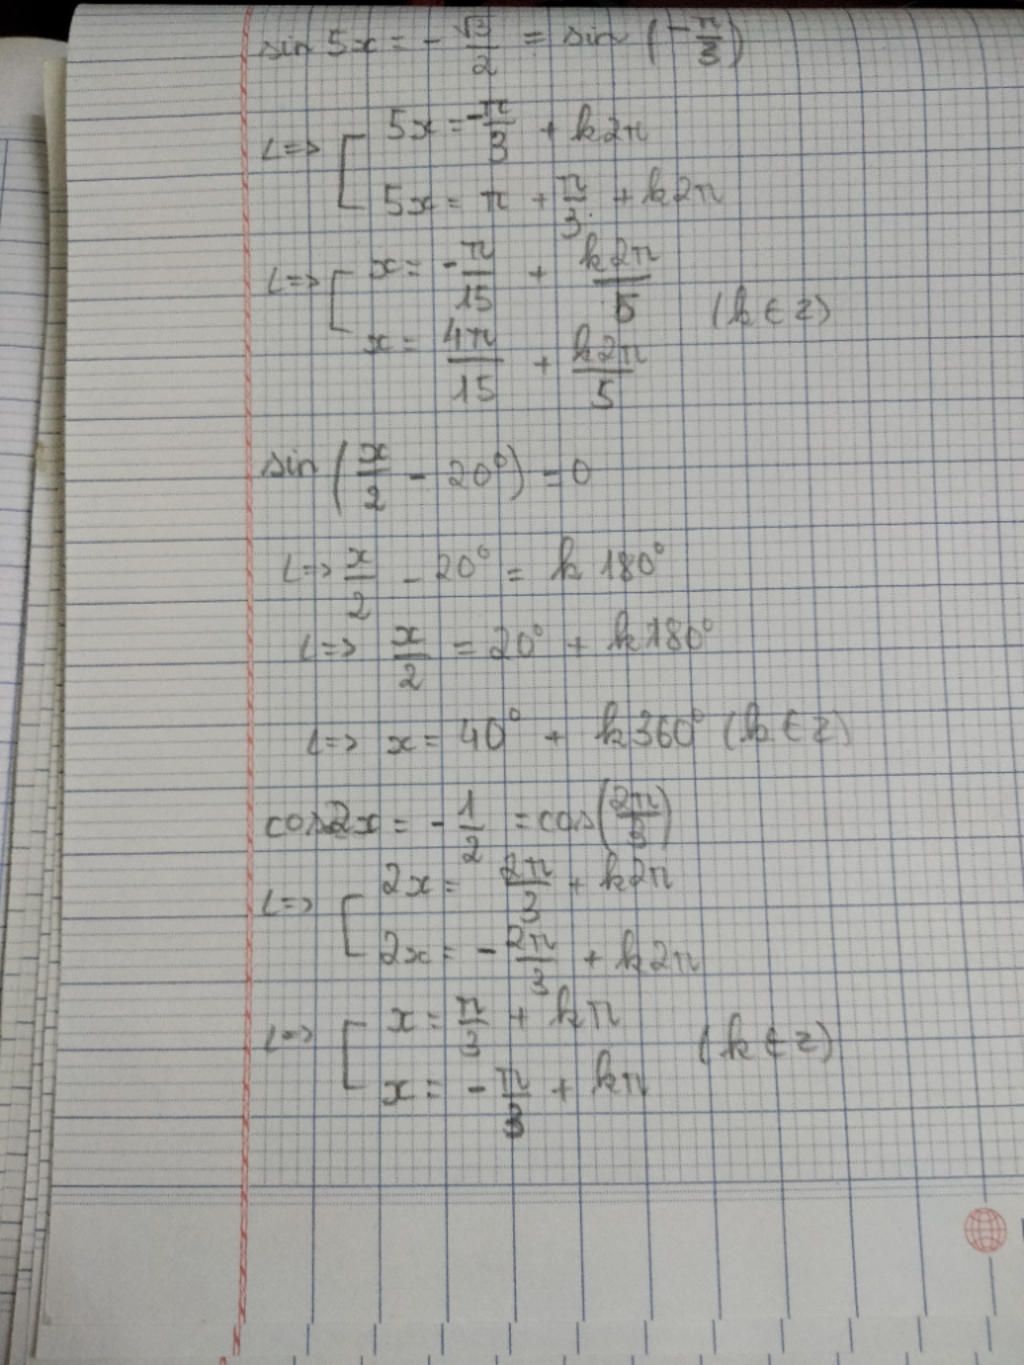 sin 5x = - √3/2 = sin (-π/3)
<=> [ 5x = -π/3 + k2π
5x = π + π/3 + k2π
<=> [ x = -π/15 + k2π/5
(k ∈ Z)
x = 4π/15 + k2π/5
sin (x/2 - 20°) = 0
<=> x/2 - 20° = k 180°
<=> x/2 = 20° + k180°
<=> x = 40° + k360° (k ∈ Z)
cos2x = - 1/2 = cos(2π/3)
<=> [ 2x = 2π/3 + k2π
2x = - 2π/3 + k2π
<=> [ x = π/3 + kπ
(k ∈ Z)
x = - π/3 + kπ